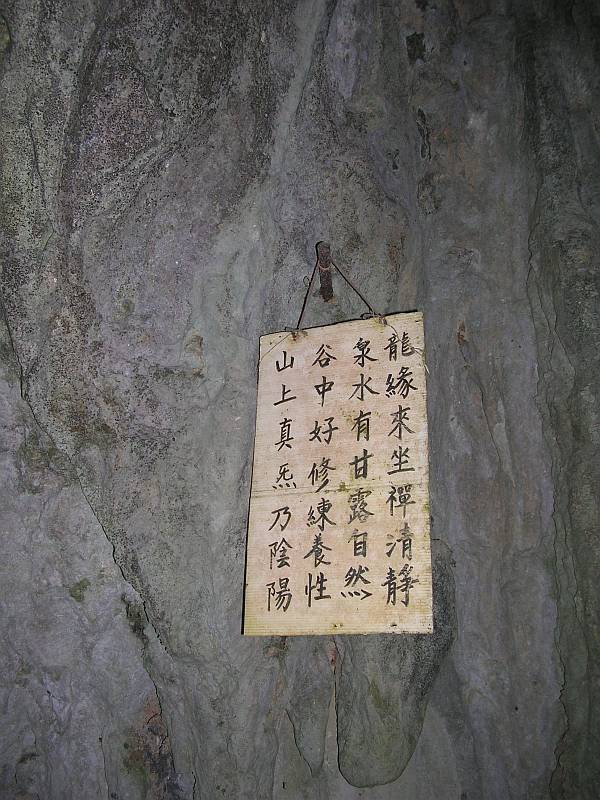 龍緣來坐禪清靜
泉水有甘露自然
谷中好修練養性
山上真炁乃陰陽